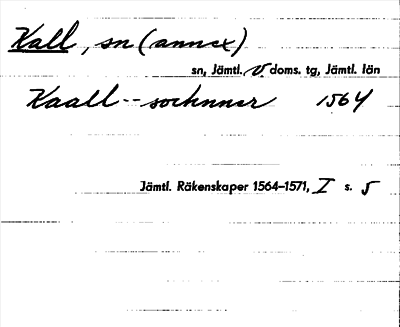 Kall, sn (annex)
sn, Jämtl. v doms. tg, Jämtl. län
Kaall -- sochnner 1564
Jämtl. Räkenskaper 1564-1571, I s. 5